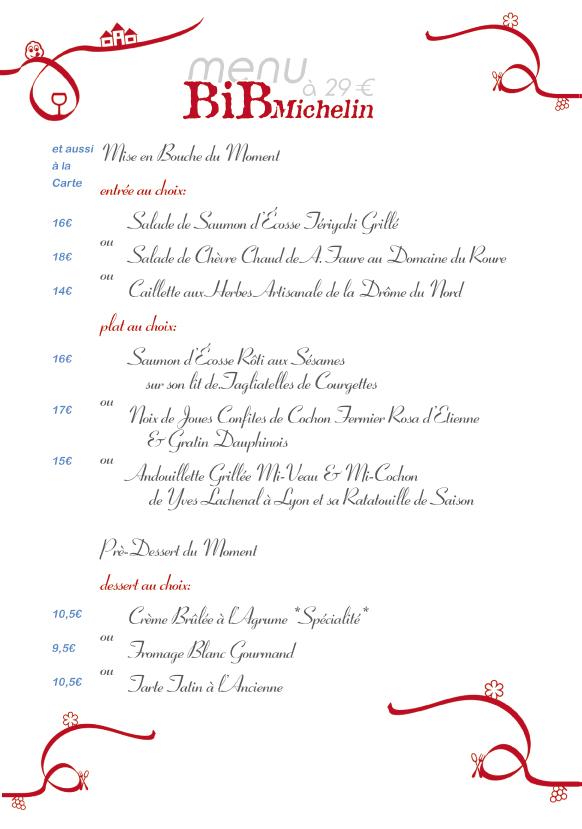 menu
à 29 €
BiB Michelin
et aussi
à la
Carte
Mise en Bouche du Moment
entrée au choix:
16€ Salade de Saumon d'Écosse Tériyaki Grillé
ou
18€ Salade de Chèvre Chaud de A. Faure au Domaine du Roure
ou
14€ Caillette aux Herbes Artisanale de la Drôme du Nord
plat au choix:
16€ Saumon d'Écosse Rôti aux Sésames
sur son lit de Tagliatelles de Courgettes
ou
17€ Noix de Joues Confites de Cochon Fermier Rosa d'Etienne
& Gratin Dauphinois
15€ ou
Andouillette Grillée Mi-Veau & Mi-Cochon
de Yves Lachenal à Lyon et sa Ratatouille de Saison
Prè-Dessert du Moment
dessert au choix:
10,5€ Crème Brûlée à l'Agrume *Spécialité*
ou
9,5€ Fromage Blanc Gourmand
ou
10,5€ Tarte Tatin à l'Ancienne